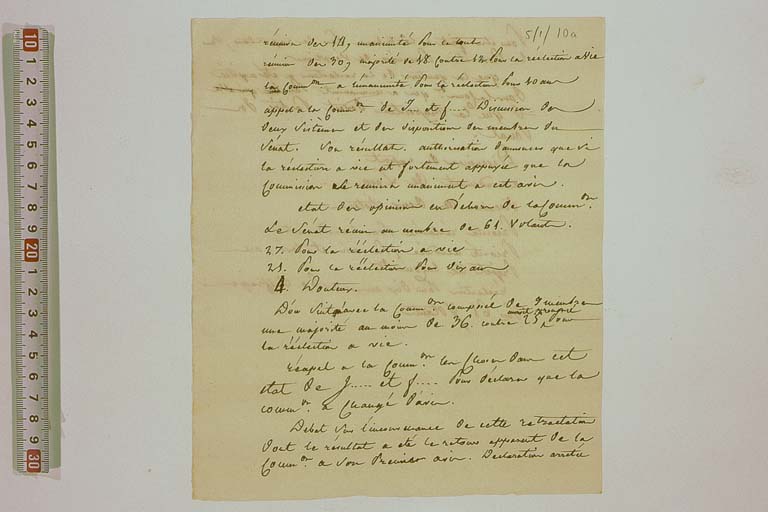 5/1/10a
réunion des 12, unanimité pour le tout
réunion des 30, majorité de 18 contre 12 pour la réélection a vie
la Comm.on a l'unanimité pour la réélection pour 10 ans
appel a la Comm.on de J... et f.... Discussion des
deux sistèmes et des dispositions des membres du
Sénat. Son résultat. authorisation d'annoncer que si
la réélection a vie est fortement appuyée que la
Commission se réunira unaniment a cet avis.
etat des opinions en dehors de la Comm.on.
Le Sénat réuni au nombre de 61. Votants.
27. Pour la réélection a vie
21. Pour la réélection pour dix ans
4. Douteux.
D'ou suit avec la Comm.on composée de 9 membres
une majorité au moins de 36. contre 25 pour
la réélection a vie.
rappel a la Comm.on les choses dans cet
etat de J..... et f.... Pour déclarer que la
comm.on a changé d'avis.
Debat sur l'inconvenance de cette retractation
dont le résultat a été le retour apparent de la
Comm.on a son Premier avis. Declaration arretée